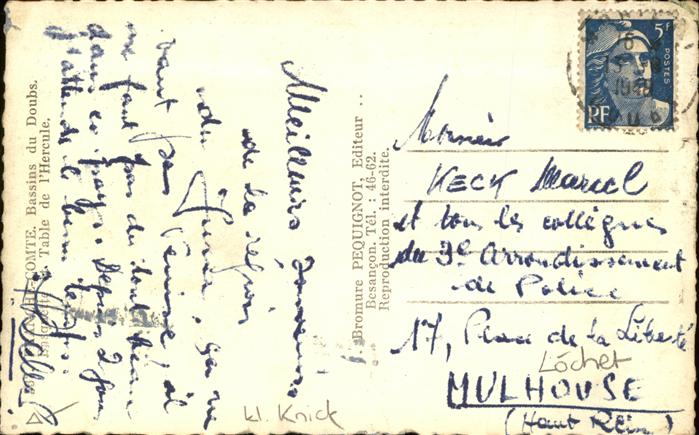 Meilleurs souvenirs
de la région
du Jura. Ça ne
vaut pas
ne fait pas du tout
dans ce pays. Depuis 2 jours
j'attends le beau temps.
FRANCHE-COMTÉ. Bassins du Doubs.
Table de l'Hercule.
Bromure PEQUIGNOT, Editeur ..
Besançon. Tél. : 46-62.
Reproduction interdite.
5F
POSTES
RF
Monsieur
KECK Marcel
et tous les collègues
du 3e Arrondissement
de Police
17, Place de la Liberté
MULHOUSE
(Haut Rhin)
Löchet
kl. Knick